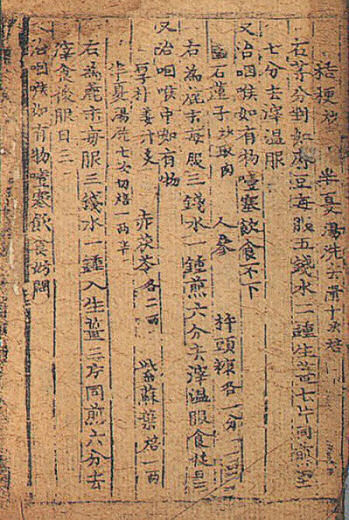 桔梗炒 半夏湯洗去滑十次焙
右等分剉如麻豆每服五錢水一鍾生薑七片同煎至
七分去滓溫服
又治咽喉如有物噎塞飲食不下
石蓮子炒取肉 人參 杵頭糠各一分
右為麄末每服三錢水一鍾煎六分去滓溫服食後日三
又治咽喉中如有物
厚朴姜汁炙 赤茯苓各二兩 紫蘇葉焙一兩
半夏湯洗七次切焙一兩半
右為麄末每服三錢水一鍾入生薑三片同煎六分去
滓食後服日三
治咽喉如有物噎塞飲食妨悶